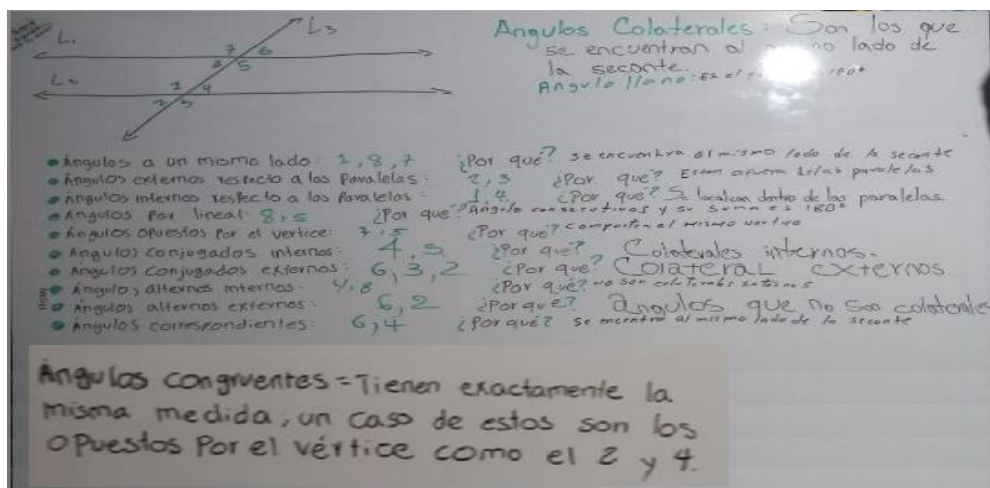 L₁
L₂
L₃
7 6
8 5
1 4
2 3
Angulos Colaterales: Son los que
se encuentran al lado de
la secante.
Angulo llano: Es el 180°
Ángulos a un mismo lado: 1, 8, 7 ¿Por qué? se encuentra al mismo lado de la secante
Ángulos externos respecto a las Paralelas: 2, 3 ¿Por qué? Estan afuera de las paralelas
Ángulos internos respecto a las Paralelas: 1, 4 ¿Por que? Se localizan dentro de las paralelas.
Angulos Par lineal: 8, 5 ¿Por que? Angulo consecutivos y su suma es 180°
Ángulos opuestos Por el vertice: 7, 5 ¿Por qué? comparten el mismo vertice
Angulos conjugados internos: 4, 5 ¿Por qué? Colaterales internos.
Angulos conjugados externos: 6, 3, 2 ¿Por qué? Colateral externos
Ángulos alternos internos: 4, 8 ¿Por qué? no son colaterales
Ángulos alternos externos: 6, 2 ¿Por qué? angulos que no son colaterales
Ángulos correspondientes: 6, 4 ¿Por qué? Se encentra al mismo lado de la secante
Ángulos congruentes = Tienen exactamente la
misma medida, un caso de estos son los
opuestos Por el vértice como el 2 y 4.